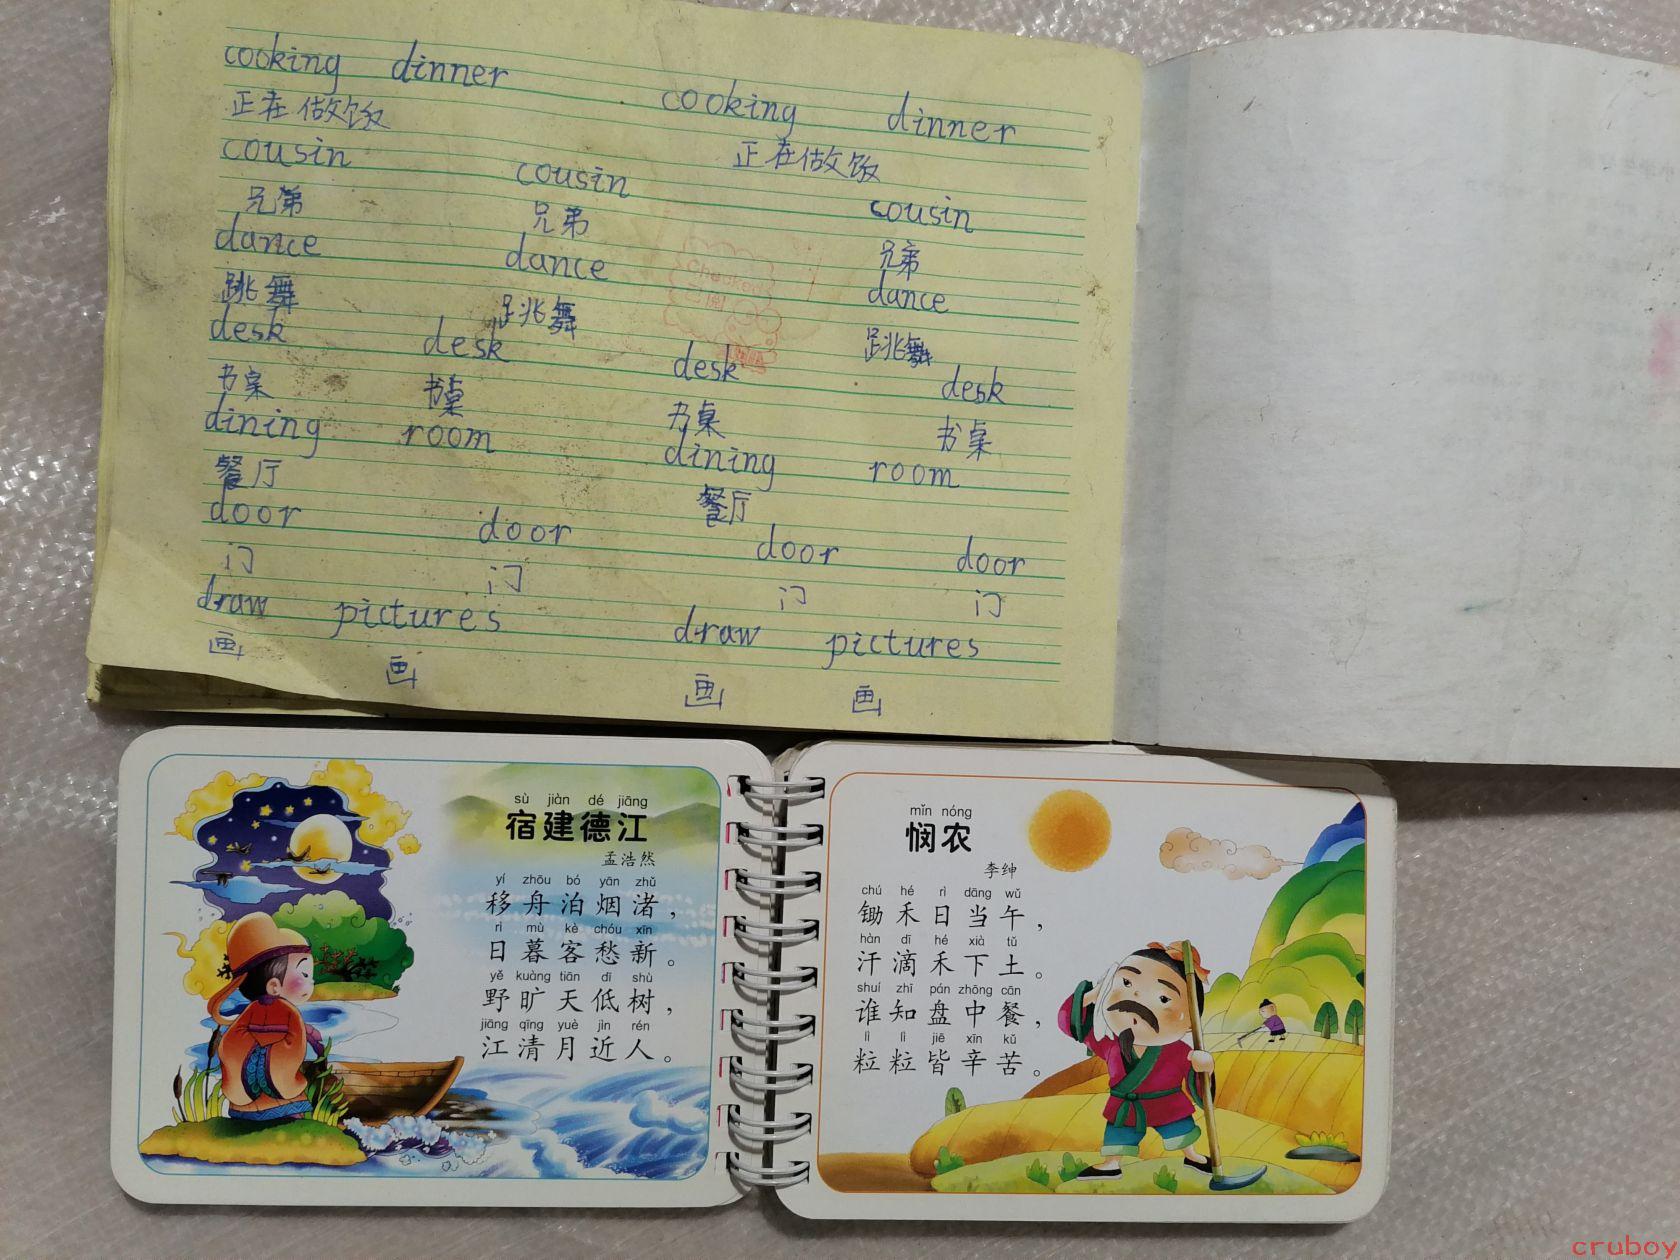 cooking dinner cooking dinner
正在做饭 正在做饭
cousin cousin cousin
兄弟 兄弟 兄弟
dance dance dance
跳舞 跳舞 跳舞
desk desk desk desk
书桌 书桌 书桌 书桌
dining room dining room
餐厅 餐厅
door door door door
门 门 门 门
draw pictures draw pictures
画 画 画 画
Checked
已阅
sù jiàn dé jiāng
宿建德江
孟浩然
yí zhōu bó yān zhǔ
移舟泊烟渚，
rì mù kè chóu xīn
日暮客愁新。
yě kuàng tiān dī shù
野旷天低树，
jiāng qīng yuè jìn rén
江清月近人。
mǐn nóng
悯农
李绅
chú hé rì dāng wǔ
锄禾日当午，
hàn dī hé xià tǔ
汗滴禾下土。
shuí zhī pán zhōng cān
谁知盘中餐，
lì lì jiē xīn kǔ
粒粒皆辛苦。
cruboy